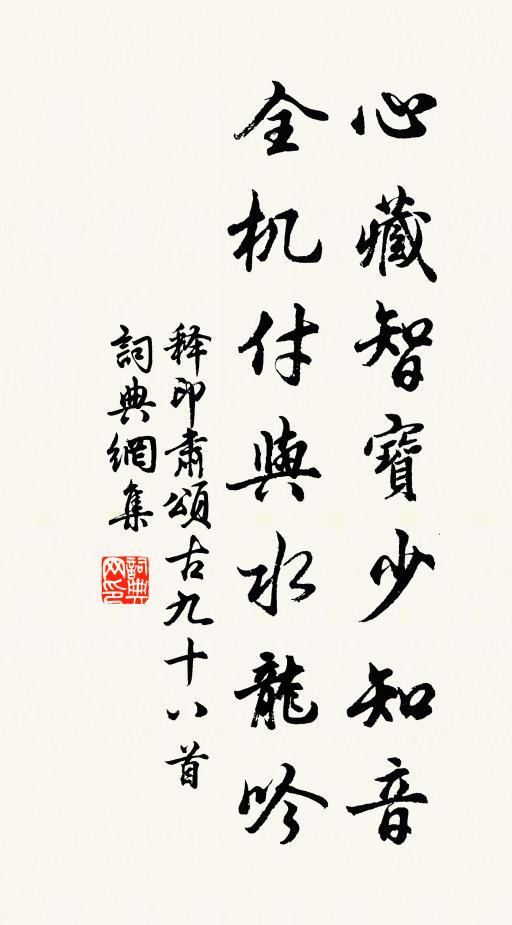 心藏智寶少知音
全机付與水龍吟
释印肅頌古九十八首
詞典網集
詞典网印